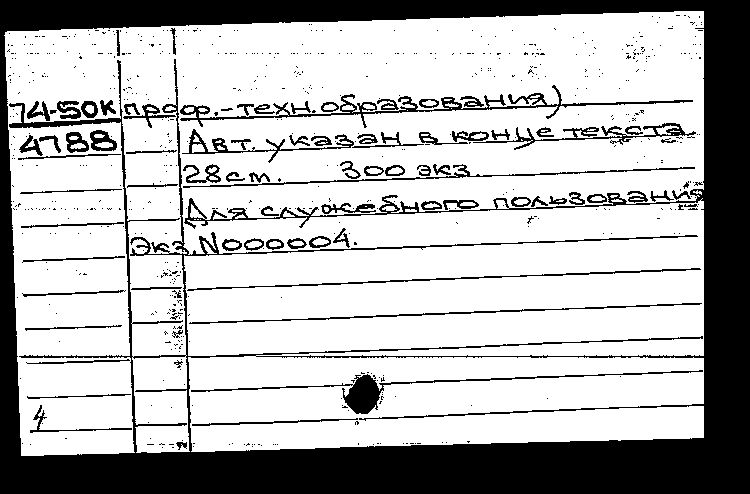 74-50к проф.-техн.образования)
4788 Авт. указан в конце текста
28 см. 300 экз.
Для служебного пользования
Экз.N000004.
4